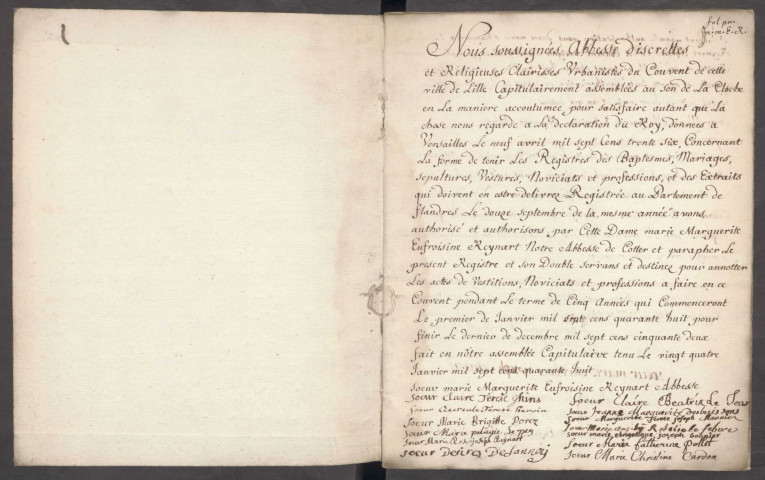 fol pr.
Nous soussignées Abbesse Discrettes
et Religieuses Clairisses Urbanistes du Couvent de cette
ville de Lille Capitulairement assemblées au son de La Cloche
en La maniere accoutumée pour satisfaire autant que La
chose nous regarde a La declaration du Roy, données a
Versailles Le neuf avril mil sept Cens trente six, Concernant
La forme de tenir Les Registres des Baptesmes, Mariages,
sepultures, Vestures, Noviciats et professions, et des Extraits
qui doivent en estre delivrez Registrée au Parlement de
flandres Le douze septembre de la mesme année avons
authorisé et authorisons par Cette Dame marie Marguerite
Eufroisine Reynart Notre Abbesse de Cotter et parapher Le
present Registre et son Double servans et destinez pour annotter
Les actes de Vestitions, Noviciats et professions a faire en ce
Couvent pendant Le terme de Cinq Années qui Commenceront
Le premier de Janvier mil sept cens quarante huit pour
finir Le dernier de decembre mil sept cens cinquante deux
fait en nôtre assemblée Capitulaire tenu Le vingt quatre
Janvier mil sept cent quarante huit
soeur marie Marguerite Eufroisine Reynart Abbesse
soeur Claire Térese
soeur Claire Beatrix Le
soeur Térese
soeur Jeanne Marguerite
soeur Marguerite Térese joseph
soeur Marie Brigitte Dorez
soeur Marie pelagie
soeur Marie joseph
soeur marie joseph
soeur Marie Catherine Pollet
soeur Desirez Delannoy
soeur Marie Christine Cardon